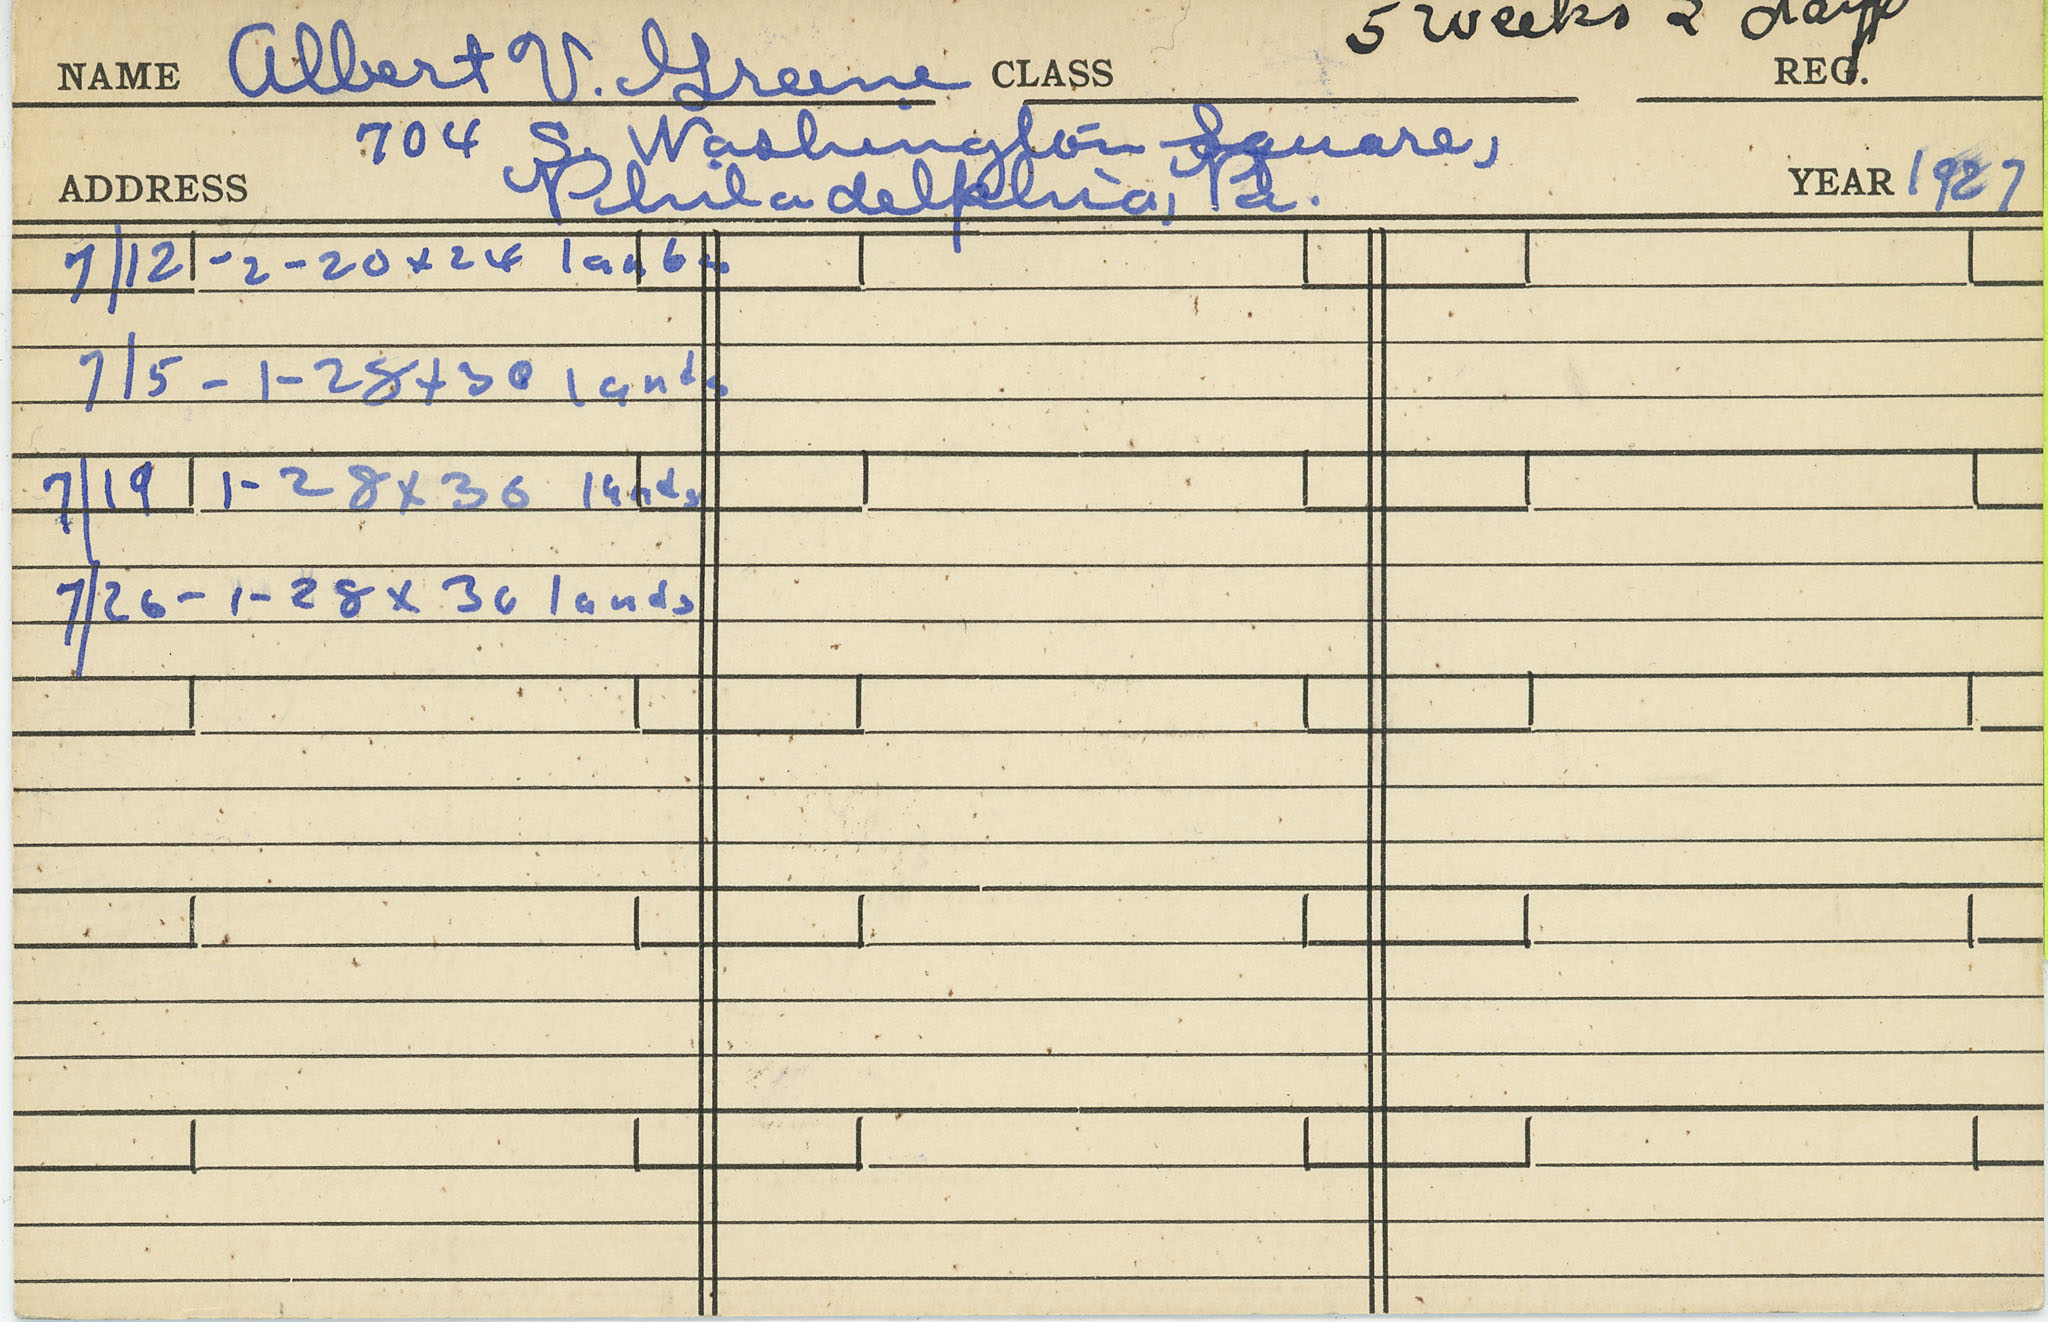 5 weeks 2 days
NAME Albert V. Greene CLASS REG.
704 S. Washington Square,
ADDRESS Philadelphia, Pa. YEAR 1927
7/12 -2-20x24 lands
7/5 - 1-28x30 lands
7/19 1-28x30 lands
7/26-1-28x30 lands